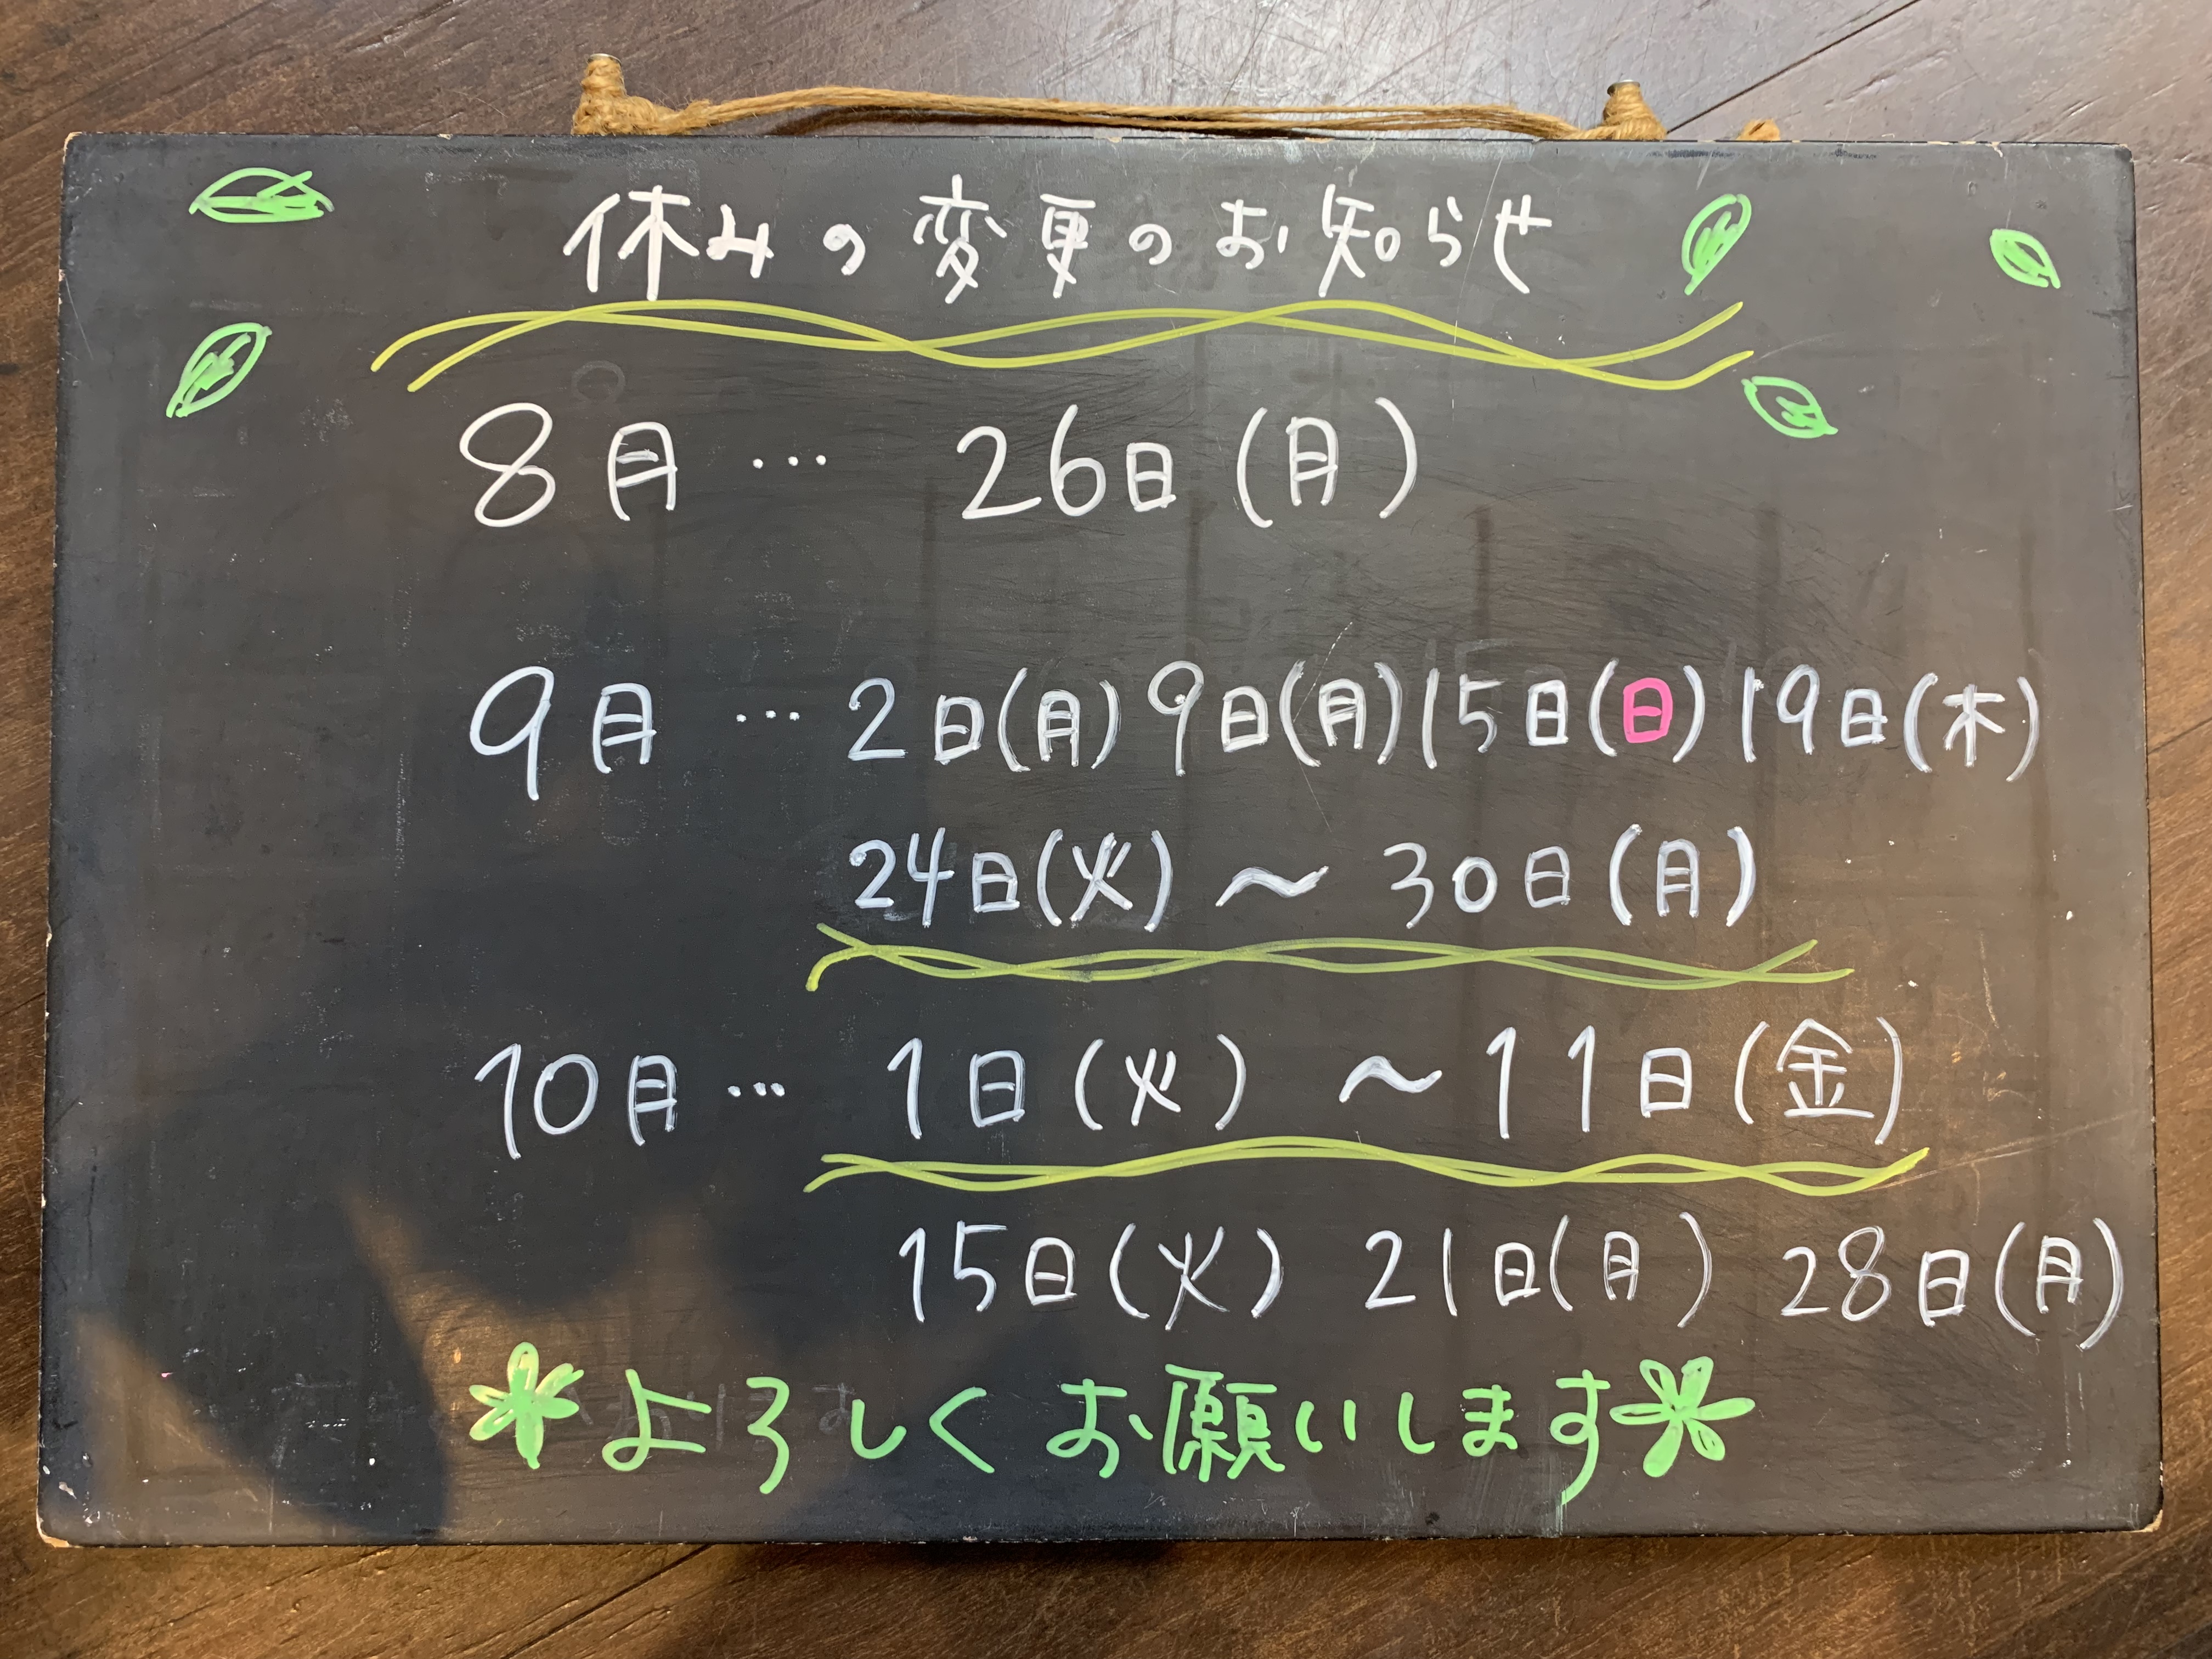 休みの変更のお知らせ
8月… 26日(月)
9月…2日(月)9日(月)15日(日)19日(木)
24日(火)〜30日(月)
10月…1日(火)〜11日(金)
15日(火) 21日(月) 28日(月)
よろしくお願いします